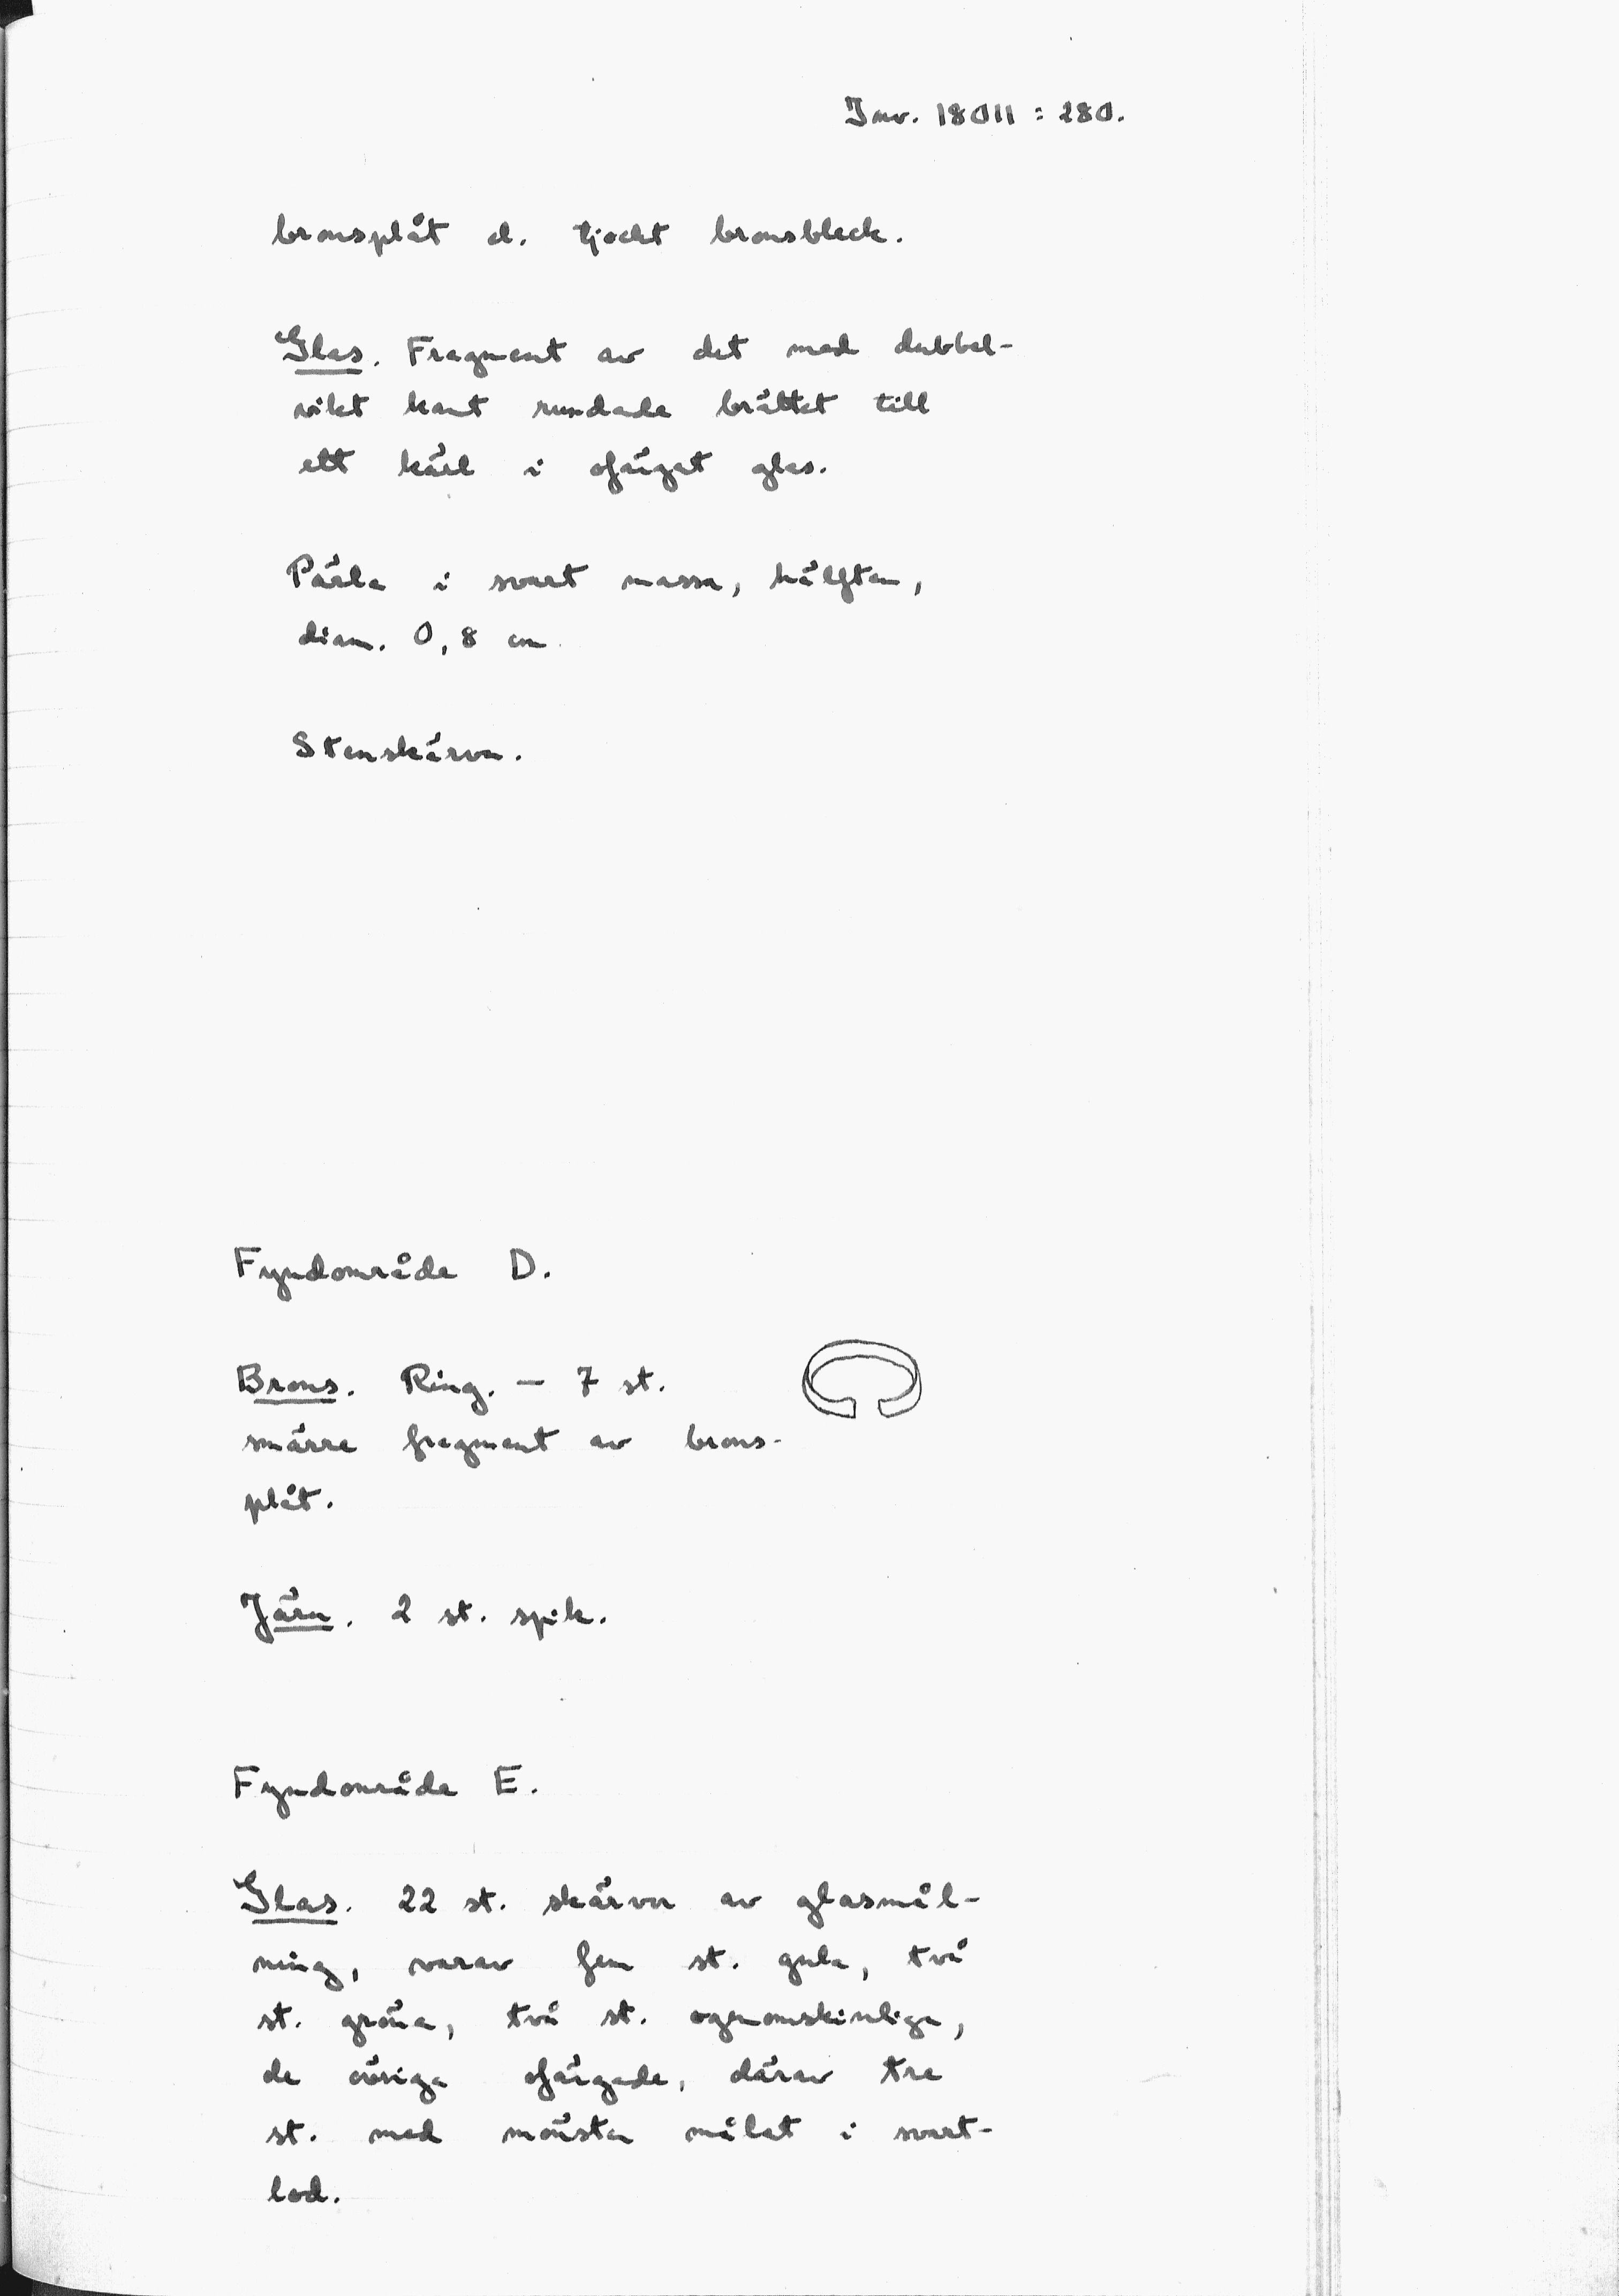 Inv. 18011 : 280.
bronsplåt el. tjockt bronsbleck.
Glas. Fragment av det med dubbel-
vikt kant rundade brättet till
ett kärl i ofärgat glas.
Pärla i svart massa, hälften,
diam. 0,8 cm.
Stenskärva.
Fyndområde D.
Brons. Ring. - 7 st.
smärre fragment av brons-
plåt.
Järn. 2 st. spik.
Fyndområde E.
Glas. 22 st. skärvor av glasmål-
ning, varav fem st. gula, två
st. gröna, två st. ogenomskinliga,
de övriga ofärgade, därav tre
st. med mönster målat i svart-
lod.